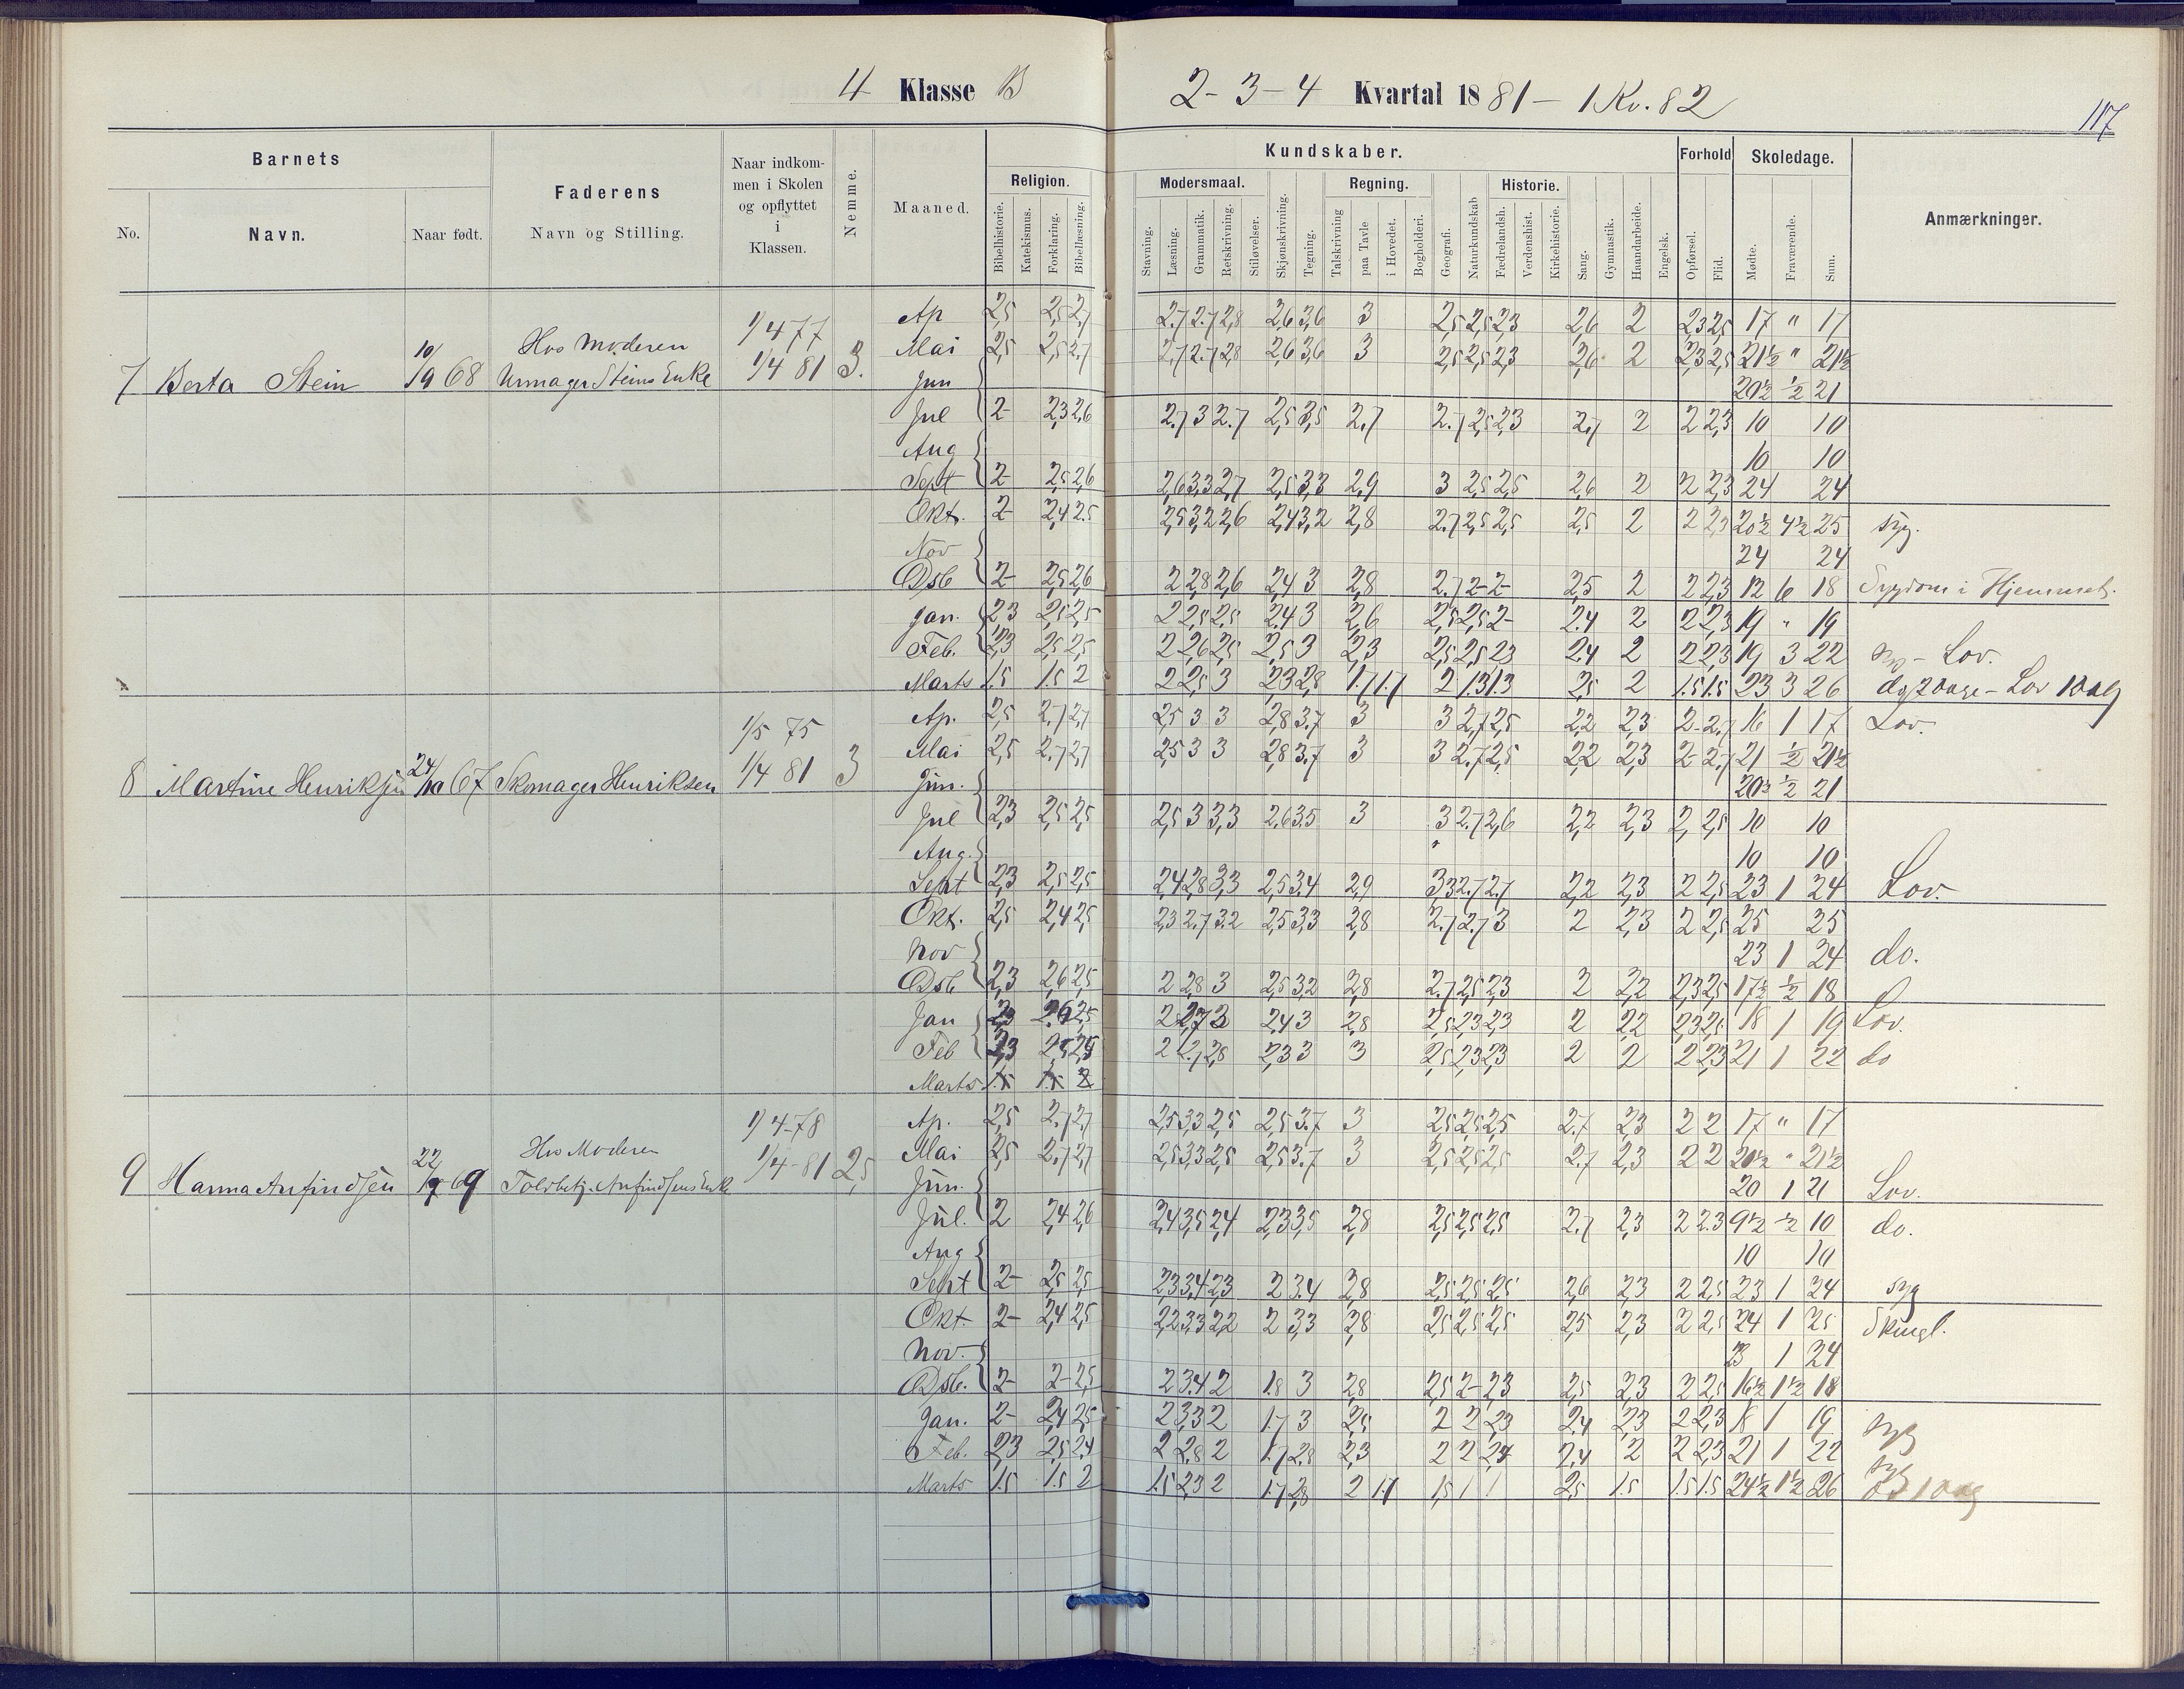 4 Klasse B
2-3-4 Kvartal 1881 - 1 Kv. 82
117
Barnets
Faderens
Naar indkommen i Skolen og opflyttet i Klassen.
Nemme.
Maaned.
Religion.
Kundskaber.
Forhold
Skoledage.
Anmærkninger.
No.
Navn.
Naar født.
Navn og Stilling.
Bibelhistorie.
Katekismus.
Forklaring.
Bibellæsning.
Modersmaal.
Regning.
Historie.
Stavning.
Læsning.
Grammatik.
Retskrivning.
Stiløvelser.
Skjønskrivning.
Tegning.
Talskrivning
paa Tavle
i Hovedet.
Bogholderi.
Geografi.
Naturkundskab
Fædrelandsh.
Verdenshist.
Kirkehistorie.
Sang.
Gymnastik.
Haandarbeide.
Engelsk.
Opførsel.
Flid.
Mødte.
Fraværende.
Sum.
7 Berta Stein 10/9 68 Hos Moderen Urmager Steins Enke 1/4 77 1/4 81 3.
Ap 2,5 2,5 2,7 2.7 2.7 2,8 2,6 3,6 3 2,5 2,5 2,3 2,6 2 2,3 2,5 17 " 17
Mai 2,5 2,5 2,7 2.7 2.7 2,8 2,6 3,6 3 2,5 2,5 2,3 2,6 2 2,3 2,5 21½ " 21½
Jun 20½ ½ 21
Jul 2- 2,3 2,6 2.7 3 2.7 2,5 3,5 2,7 2.7 2,5 2,3 2,7 2 2 2,3 10 10
Aug 10 10
Sept 2- 2,5 2,6 2,6 3,3 2,7 2,5 3,3 2,9 3 2,5 2,5 2,6 2 2 2,3 24 24
Okt. 2- 2,4 2,5 2,5 3,2 2,6 2,4 3,2 2,8 2.7 2,5 2,5 2,5 2 2 2,3 20½ 4½ 25 syg.
Nov 24 24
Dsb 2- 2,5 2,6 2 2,8 2,6 2,4 3 2,8 2.7 2- 2- 2,5 2 2 2,3 12 6 18 Sygdom i Hjemmet.
Jan. 2,3 2,5 2,5 2 2,5 2,5 2,4 3 2,6 2,5 2,5 2- 2.4 2 2 2,3 19 " 19
Feb. 2,3 2,5 2,5 2 2,6 2,5 2,5 3 2,3 2,5 2,5 2,3 2.4 2 2 2,3 19 3 22 syg - Lov.
Marts 1.5 1.5 2 2 2,5 3 2,3 2,8 1.7 1.7 2 1,3 1,3 2,5 2 1.5 1.5 23 3 26 Lov 1 Dag
8 Martine Henriksen 24/10 67 Skomager Henriksen 1/5 75 1/4 81 3
Ap. 2,5 2.7 2,7 2,5 3 3 2,8 3.7 3 3 2,7 2,5 2,2 2,3 2- 2.7 16 1 17 Lov.
Mai 2,5 2.7 2,7 2,5 3 3 2,8 3.7 3 3 2.7 2,5 2,2 2,3 2- 2.7 21 ½ 21½
Jun. 20½ ½ 21
Jul 2,3 2,5 2,5 2,5 3 3,3 2,6 3,5 3 3 2.7 2,6 2,2 2,3 2, 2,5 10 10
Aug. 10 10
Sept 2,3 2,5 2,5 2,4 2,8 3,3 2,5 3,4 2,9 3,3 2.7 2.7 2,2 2,3 2 2,5 23 1 24 Lov.
Okt. 2,5 2,4 2,5 2,3 2.7 3.2 2,5 3,3 2,8 2.7 2.7 3 2 2,3 2 2,5 25 25
Nov 23 1 24 do.
Dsb 2,3 2,6 2,5 2 2,8 3 2,5 3,2 2,8 2.7 2,5 2,3 2 2,2 2,3 2,5 17½ ½ 18
Jan 2,3 2,6 2,5 2 2,7 3 2,4 3 2,8 2,5 2,3 2,3 2 2,2 2,3 2,5 18 1 19 Lov.
Feb 2,3 2,5 2,5 2 2,7 2,8 2,3 3 3 2,5 2,3 2,3 2 2 2 2,3 21 1 22 do
Marts 1.5 1.5 2
9 Hanna Anfindsen 22/9 69 Hos Moderen Toldbetj. Anfindsens Enke 1/4-78 1/4-81 2,5
Ap. 2,5 2.7 2,7 2,5 3,3 2,5 2,5 3.7 3 2,5 2,5 2,5 2.7 2,3 2 2 17 " 17
Mai 2,5 2.7 2,7 2,5 3,3 2,5 2,5 3.7 3 2,5 2,5 2,5 2.7 2,3 2 2 21½ " 21½
Jun. 20 1 21 Lov.
Jul. 2 2,4 2,6 2,4 3,5 2,4 2,3 3,5 2,8 2,5 2,5 2,5 2.7 2,3 2 2.3 9½ ½ 10 do.
Aug 10 10
Sept 2- 2,5 2,5 2,3 3,4 2,3 2 3.4 2,8 2,5 2,5 2,5 2,6 2,3 2 2,5 23 1 24 syg
Okt. 2- 2,4 2,5 2,2 3,3 2,2 2 3,3 2,8 2,5 2,5 2,5 2,5 2,3 2 2,5 24 1 25
Nov. 23 1 24
Dsb. 2- 2- 2,5 2 3.4 2 1.8 3 2,8 2,5 2- 2,3 2,5 2,3 2 2,5 16½ 1½ 18
Jan. 2- 2,4 2,5 2 3,3 2 1.7 3 2,5 2 2 2,3 2.4 2,3 2 2,3 18 1 19 syg
Feb. 2,3 2,5 2,4 2 2,8 2 1.7 2,8 2,3 2 2 2,4 2,4 2 2 2,3 21 1 22 syg
Marts 1.5 1.5 2 1.5 2,3 2 1.7 2,8 2 1.7 1,5 1 1 2,5 1.5 1.5 1.5 24½ 1½ 26